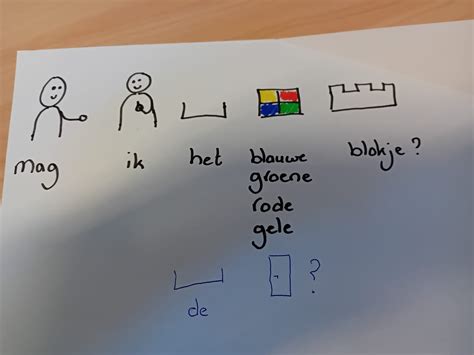 mag ik het blauwe blokje?
groene
rode
gele
?
de